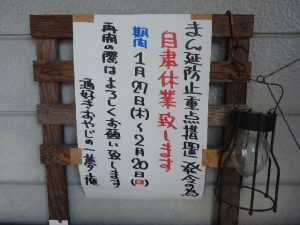 まん延防止重点措置発令の為
自粛休業致します
期間 1月27日(木)〜2月20日(日)
再開の際はよろしくお願い致します
酒好きおやじの一夢今俺